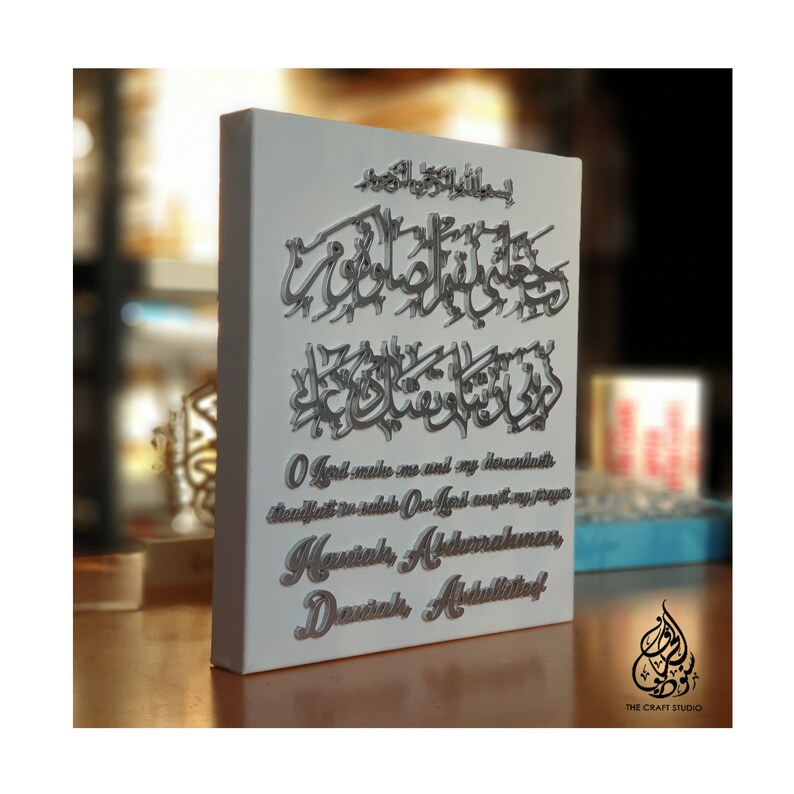 بسم الله الرحمن الرحيم
رب اجعلني مقيم الصلوة ومن
ذريتي ربنا وتقبل دعاء
O Lord make me and my descendants
steadfast in salah Our Lord accept my prayer
Haniah, Abdurrahman,
Daniah, Abdullateef
THE CRAFT STUDIO